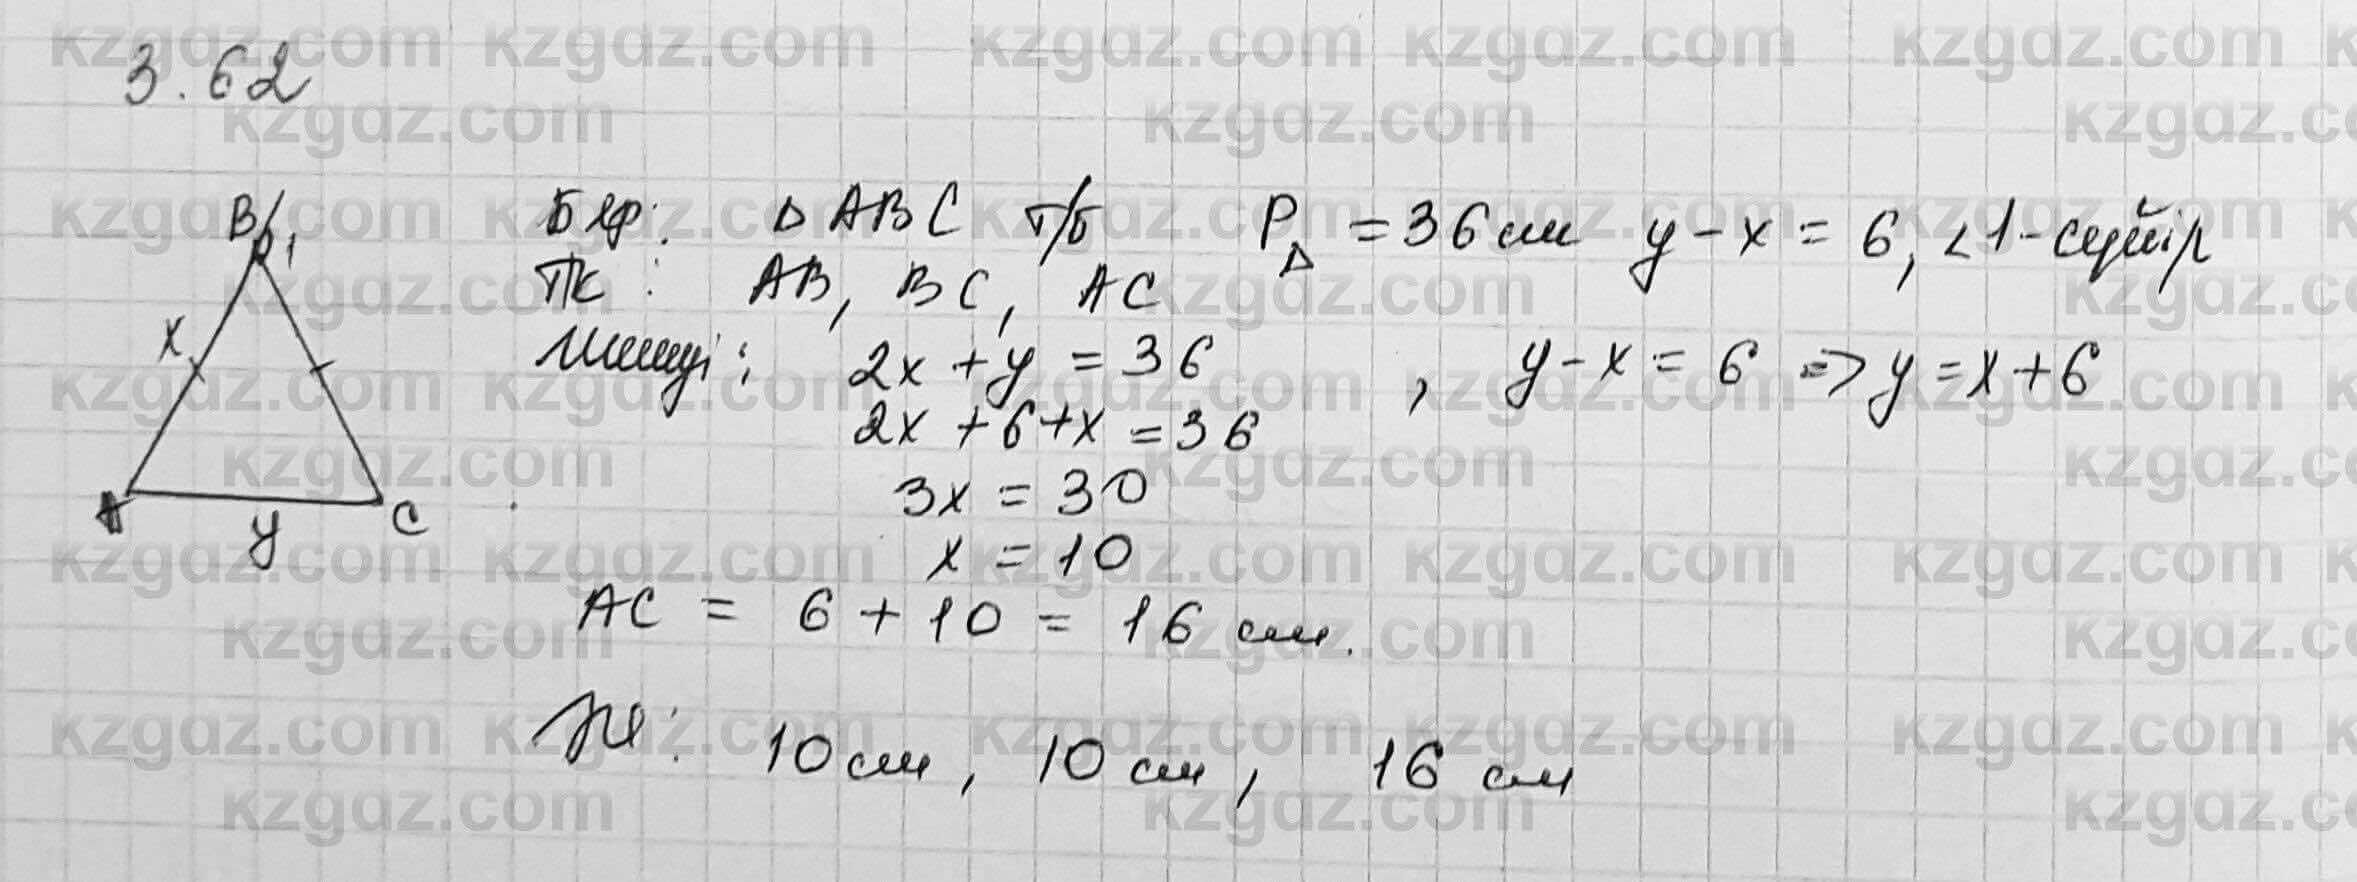 3.62
Бер: Δ ABC т/б P_Δ = 36 см y - x = 6, ∠1 - сүйір
Тк: AB, BC, AC
Шешуі: 2x + y = 36, y - x = 6 => y = x + 6
2x + 6 + x = 36
3x = 30
x = 10
AC = 6 + 10 = 16 см.
Ж: 10 см, 10 см, 16 см
B 1
x
A y C
kzgdz.com